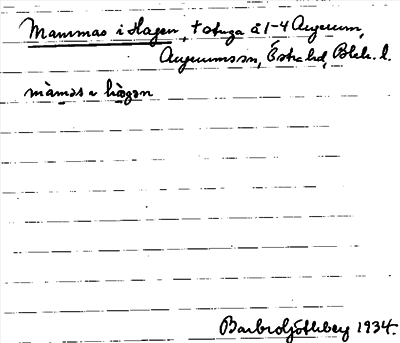 Mammas i Hagen, † stuga å 1-4 Augerum,
Augerums sn, Östra hd, Blek. l.
màmas i hàgen
Barbro Götheberg 1934.